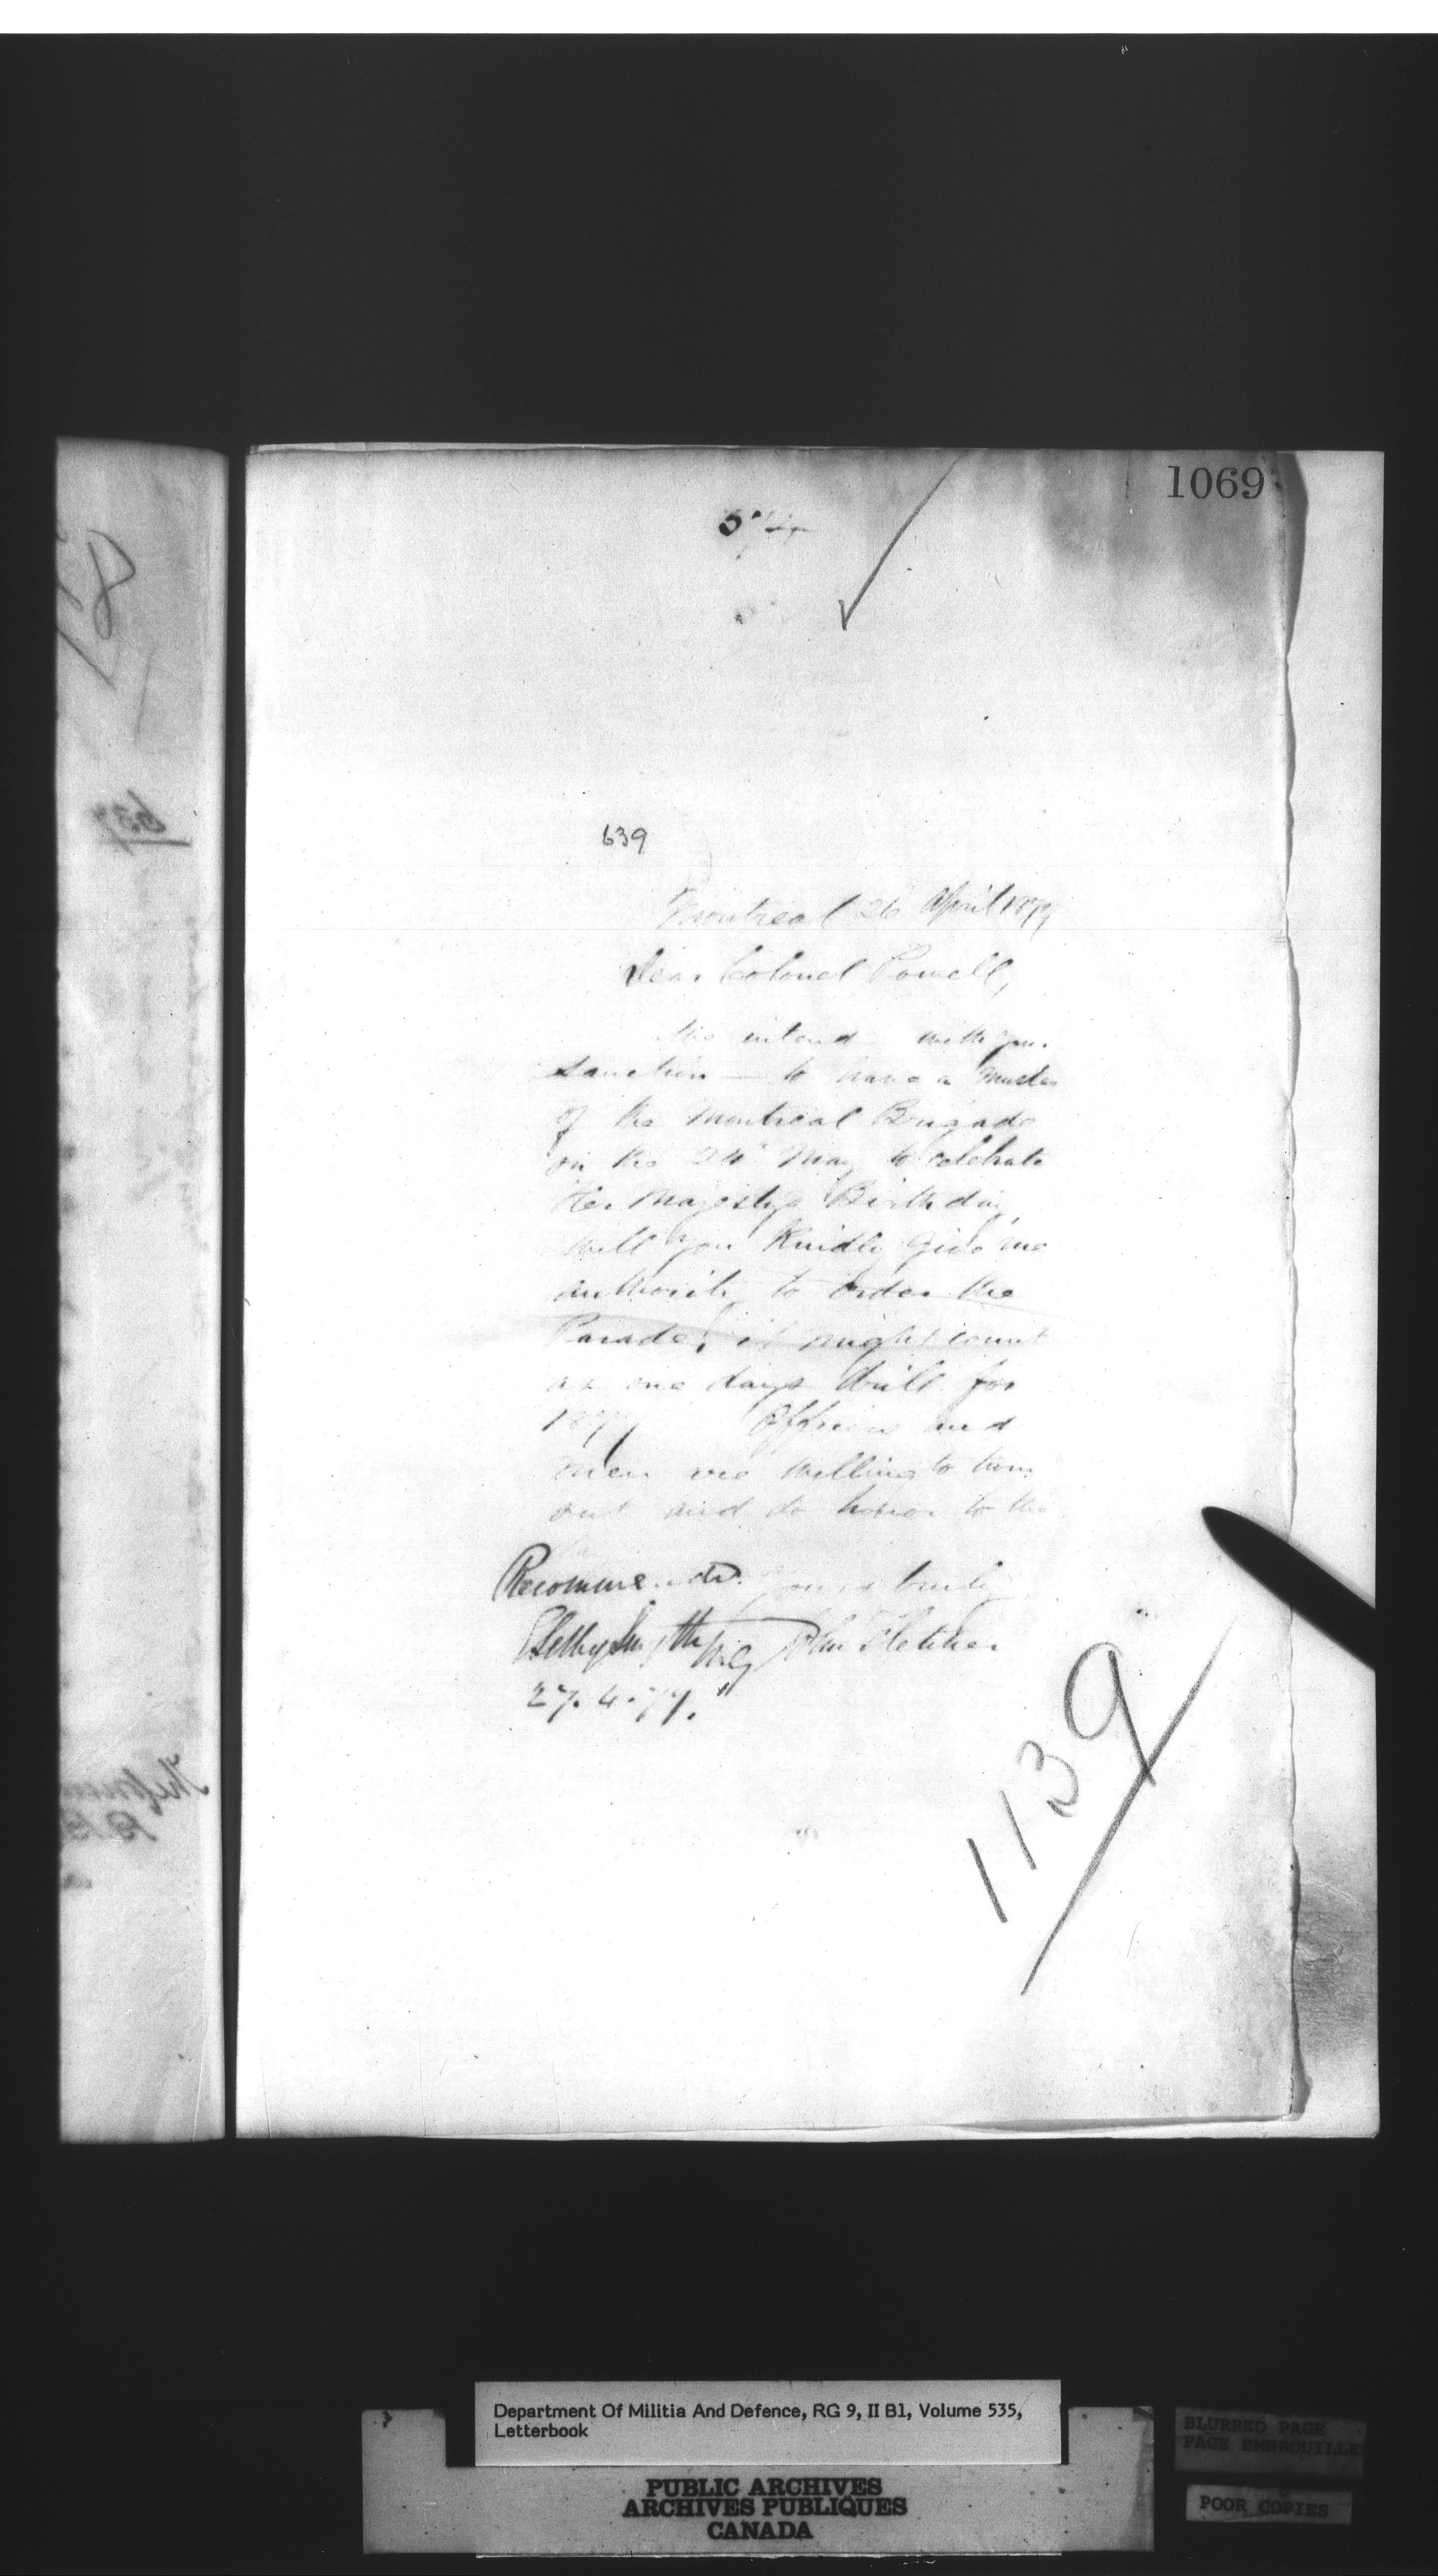 1069
639
Montreal 26 April 1877
Dear Colonel Powell,
We intend with your
sanction — to have a muster
of the Montreal Brigade
on the 24th May to celebrate
Her Majestys Birthday,
will you Kindly give me
authority to order the
Parade, it might count
as one days drill for
1877 Officers and
men are willing to turn
out and do honor to the
Recommended. Yours truly
E Selby Smyth M.G. John Fletcher
27.4.77.
1139
Department Of Militia And Defence, RG 9, II B1, Volume 535,
Letterbook
PUBLIC ARCHIVES
ARCHIVES PUBLIQUES
CANADA
BLURRED PAGE
PAGE EMBROUILLEE
POOR COPIES